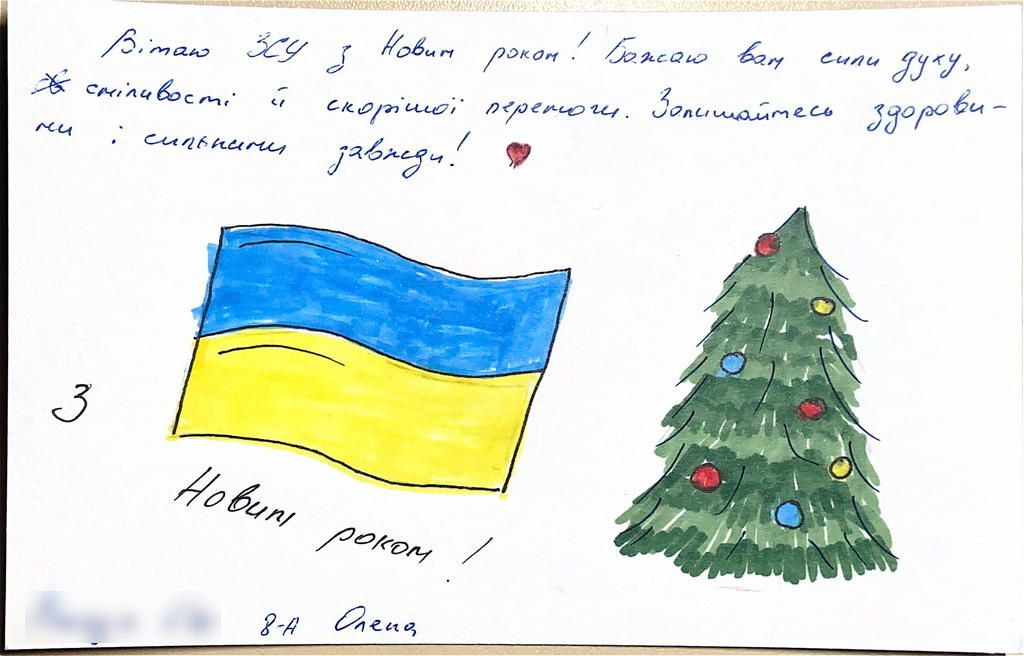 Вітаю ЗСУ з Новим роком! Бажаю вам сили духу,
сміливості й скорішої перемоги. Залишайтесь здорови-
ми і сильними завжди!
З
Новим роком!
8-А Олена